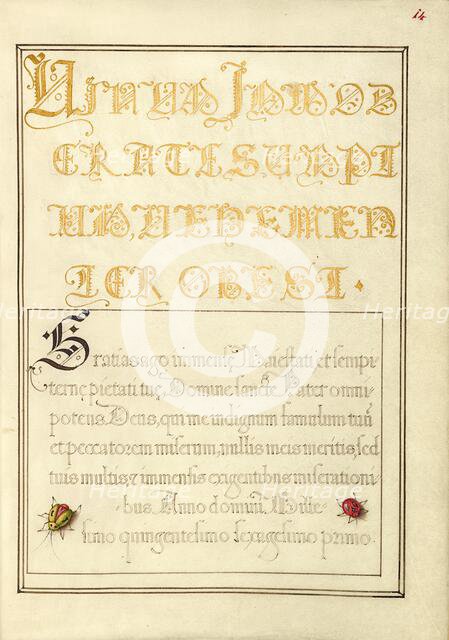 14
VINUM IMMOD
ERATE SUMPT
UM, VEHEMEN
TER OBEST.
Gratias ago immense Maiestati et sempi
terne pietati tue, Domine sancte Pater omni
potens Deus, qui me indignum famulum tuũ
et peccatorem miserum, nullis meis meritis, sed
tuis multis et immensis exigentibus miserationi
bus. Anno domini Mille
simo quingentesimo sexagesimo primo.
Heritage
Images